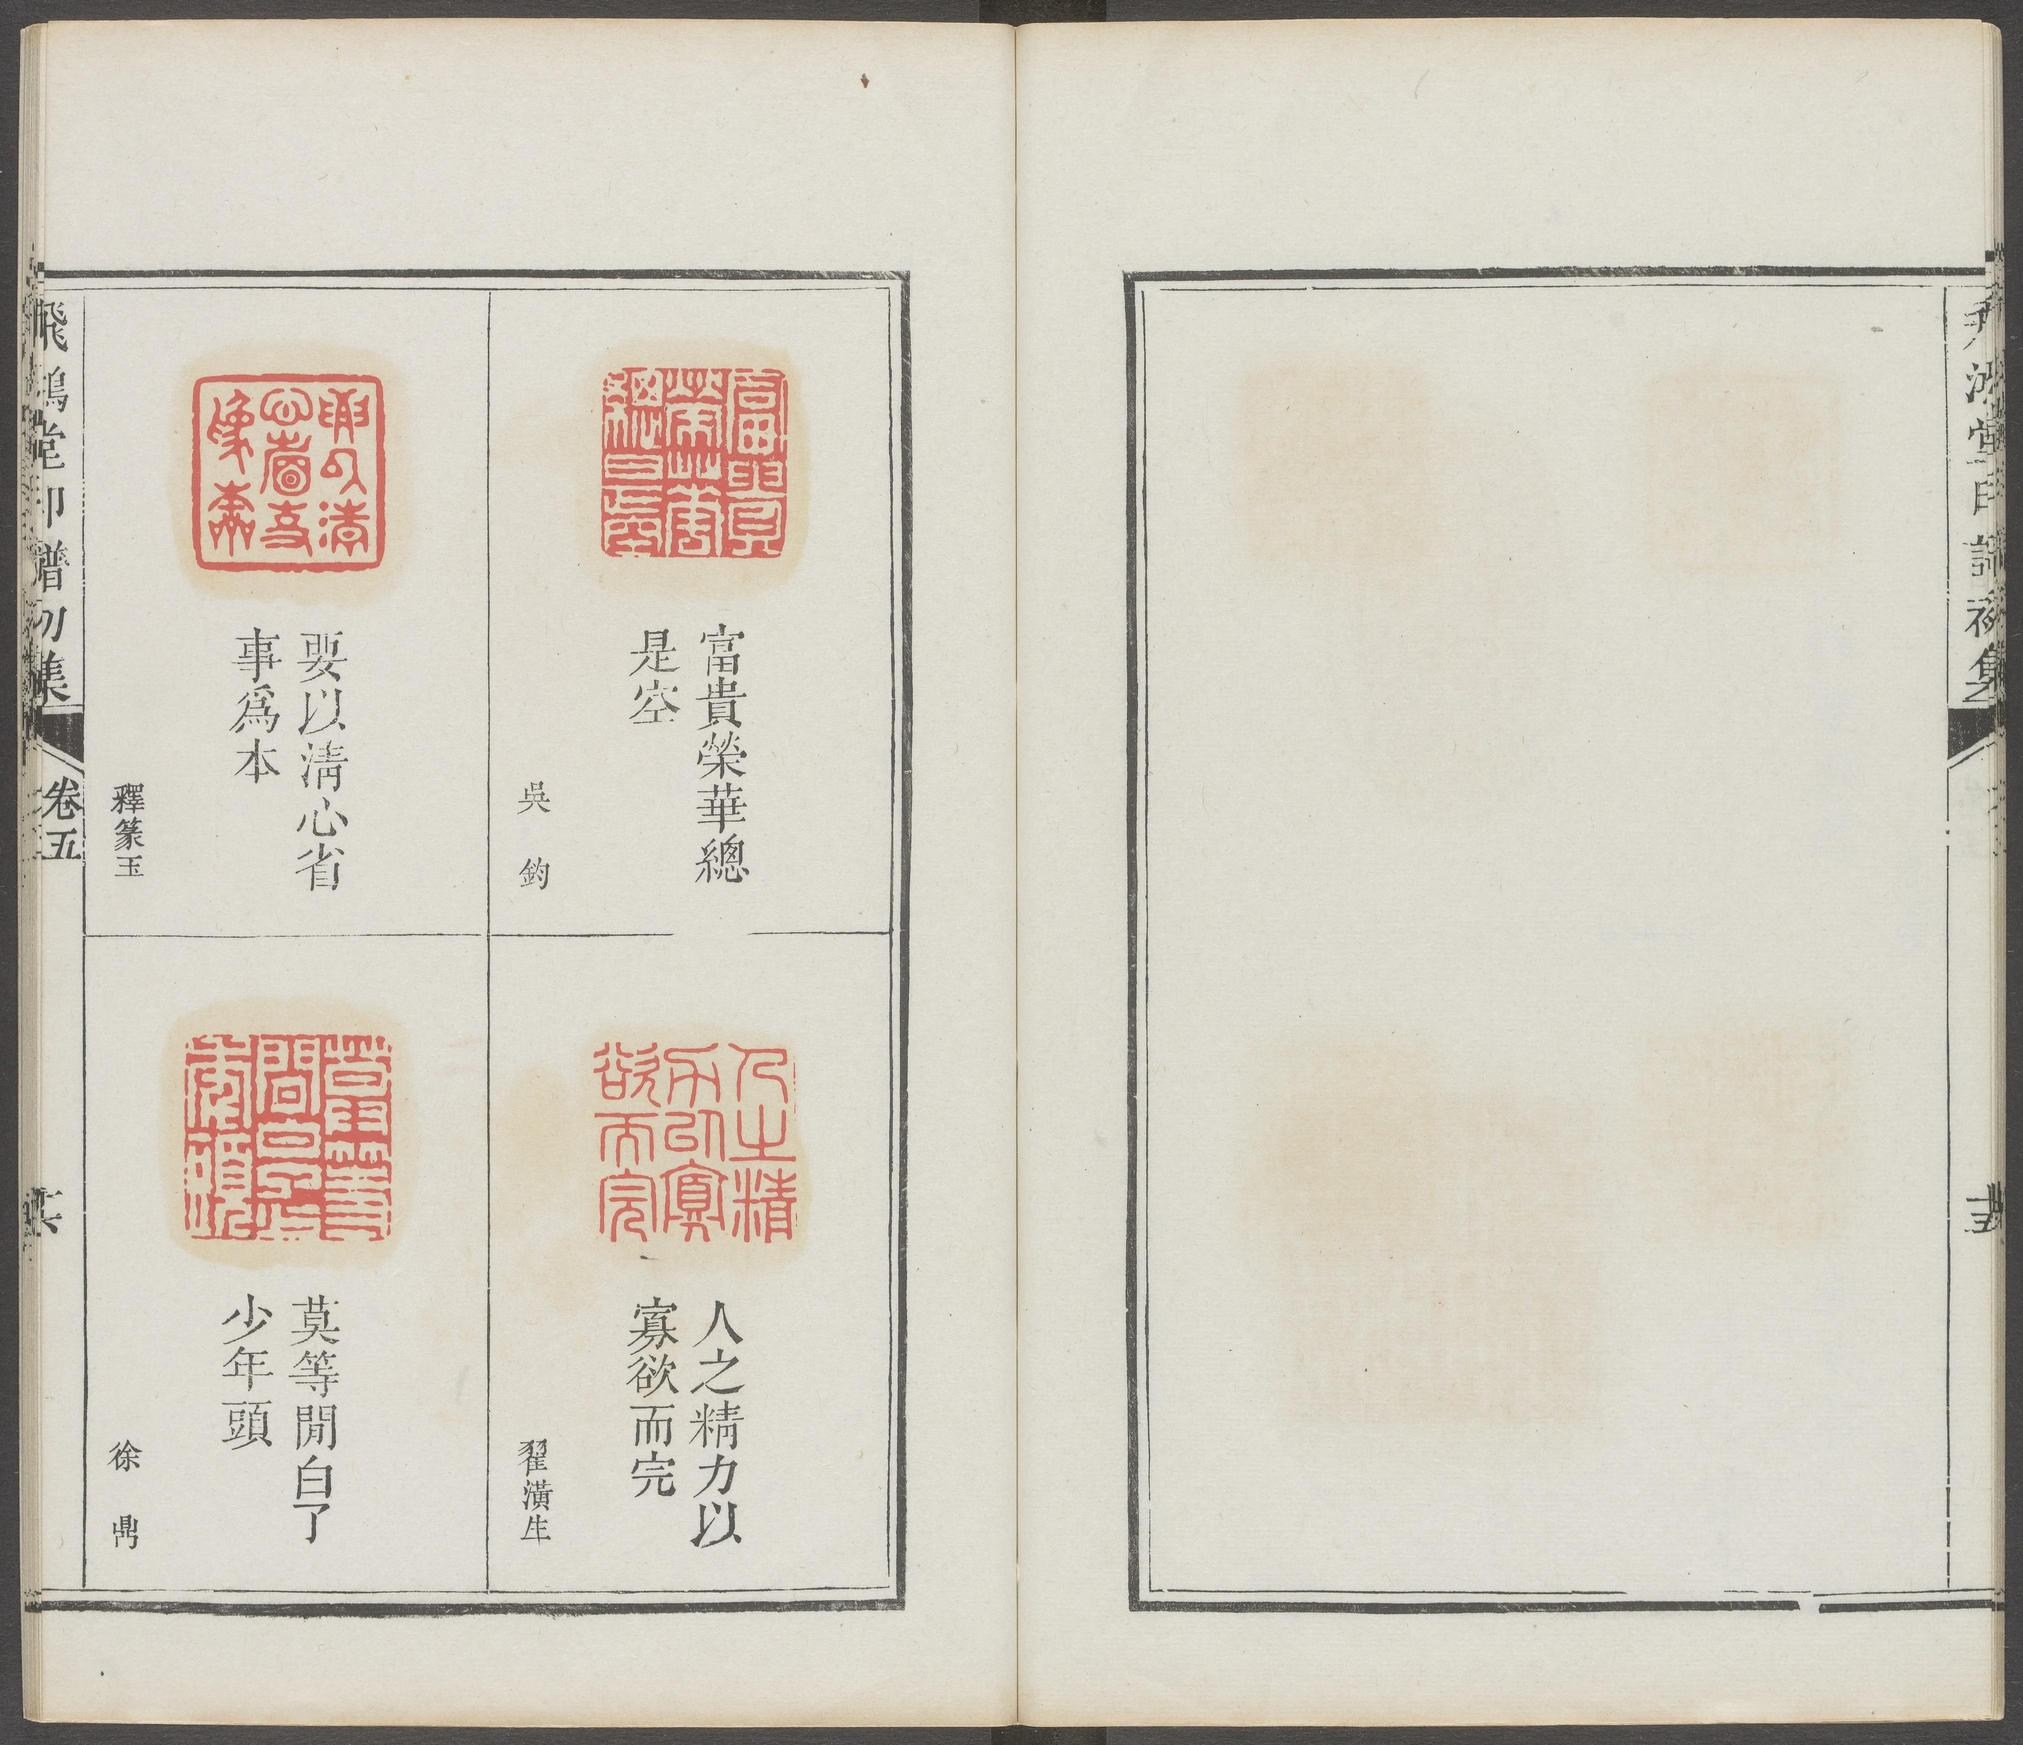 飛鴻堂印譜初集
富貴榮華總
是空
吳鈞
人之精力以
寡欲而完
翟潢生
要以清心省
事爲本
釋篆玉
莫等閒白了
少年頭
徐鼎
飛鴻堂印譜初集
卷五